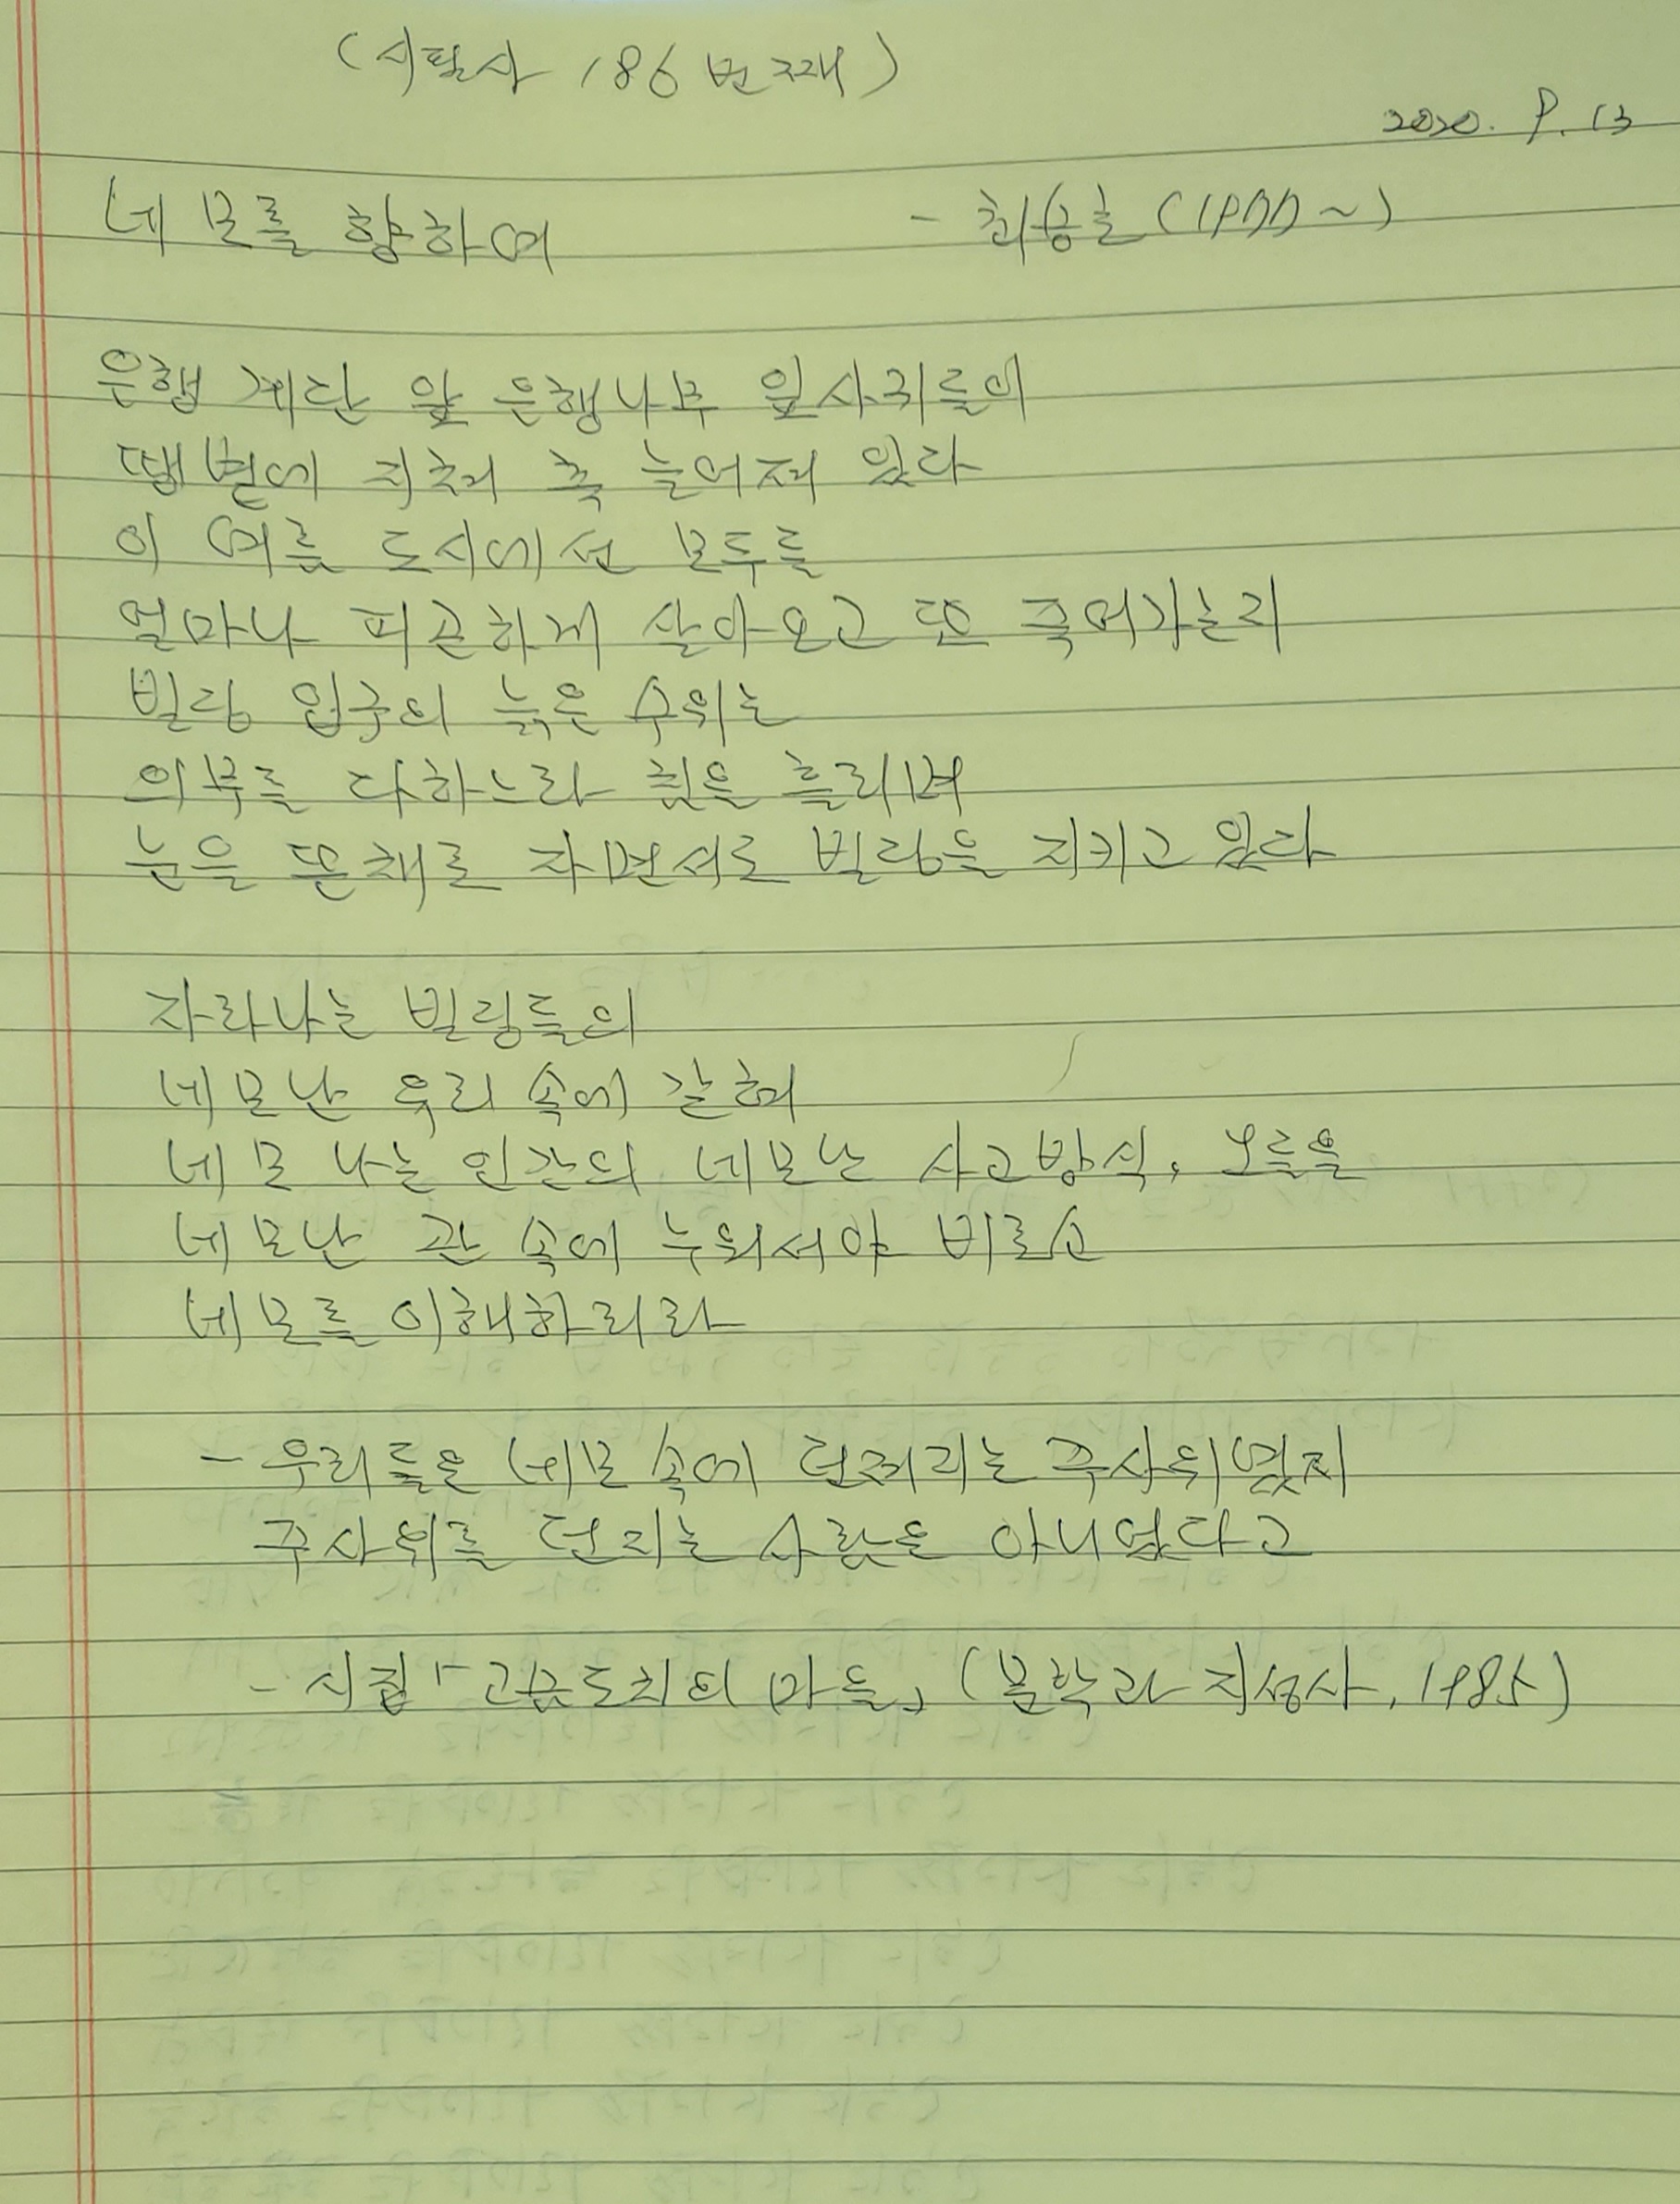 (시필사 186 번째)
2020. 9. 13
네모를 향하여 - 최승호 (19 ~)
은행 계단 앞 은행나무 잎사귀들의
땡볕에 지쳐 축 늘어져 있다
이 여름 도시에선 모두들
얼마나 피곤하게 살아오고 또 죽어가는지
빌딩 입구의 늙은 수위는
의무를 다하느라 침을 흘리며
눈을 뜬 채로 자면서도 빌딩을 지키고 있다
자라나는 빌딩들의
네모난 유리 속에 갇혀
네모 나는 인간의 네모난 사고방식, 그들은
네모난 관 속에 누워서야 비로소
네모를 이해하리라
- 우리들은 네모 속에 던져지는 주사위였지
주사위를 던지는 사람은 아니었다고
- 시집 「고슴도치의 마을」 (문학과 지성사, 1985)